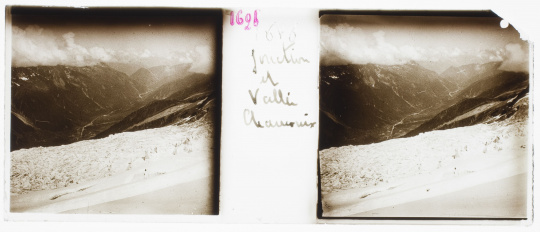 1621
Jonction
et
Vallée
Chamonix